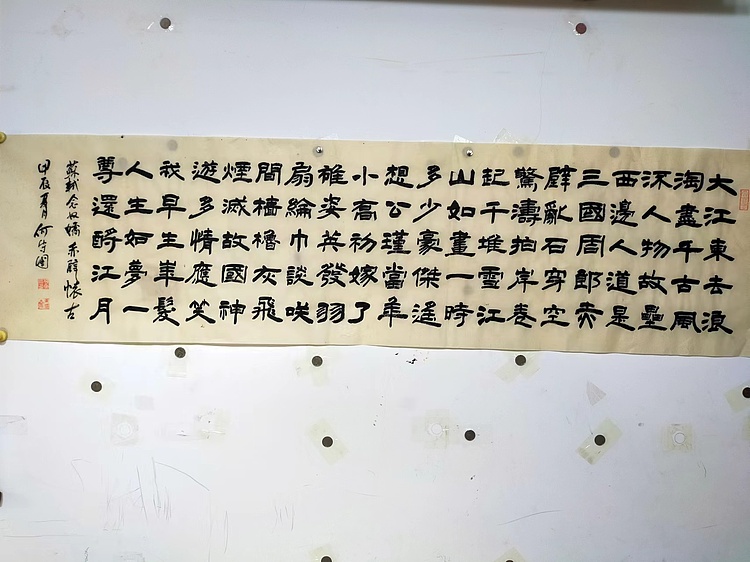 大江東去浪
淘盡千古風
流人物故壘
西邊人道是
三國周郎赤
壁亂石穿空
驚濤拍岸卷
起千堆雪江
山如畫一時
多少豪傑遙
想公瑾當年
小喬初嫁了
雄姿英發羽
扇綸巾談咲
間檣櫓灰飛
煙滅故國神
遊多情應笑
我早生華髮
人生如夢一
尊還酹江月
蘇軾念奴嬌赤壁懷古
甲辰夏月何守